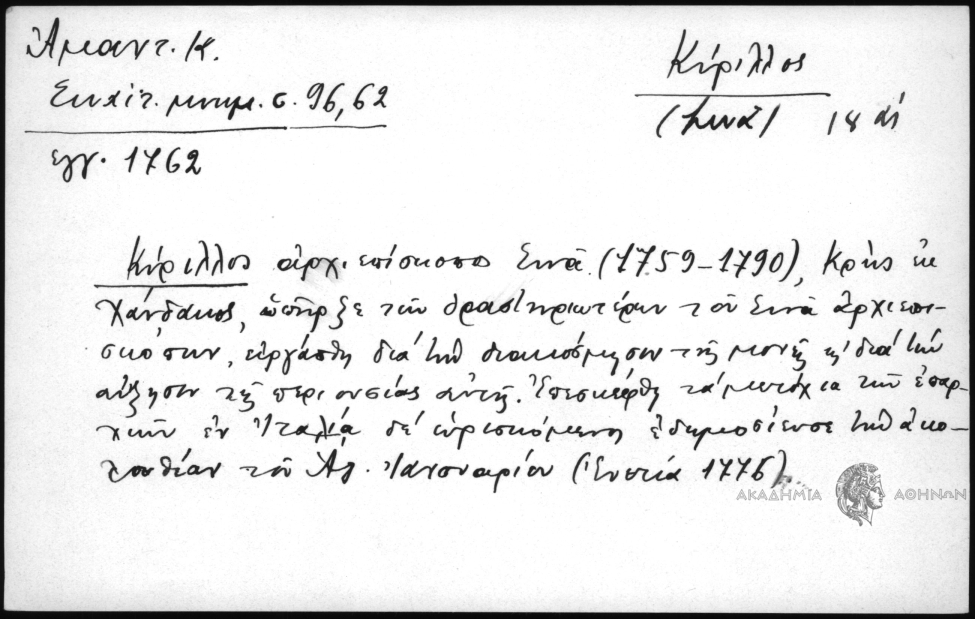 Ἀμαντ. Κ.
Σιναϊτ. μνημ. σ. 96, 62
εγγ. 1762
Κύριλλος
(Σινᾶ) 18 αἰ
Κύριλλος ἀρχιεπίσκοπος Σινᾶ (1759-1790), Κρής ἐκ
Χάνδακος, ὑπῆρξε τῶν δραστηριωτέρων τοῦ Σινᾶ ἀρχιεπι-
σκόπων, εἰργάσθη διά τήν διακόσμησιν τῆς μονῆς κ' διά τήν
αὔξησιν τῆς περιουσίας αὐτῆς. Ἐπεσκέφθη τά μετόχια τῶν ἐπαρ-
χιῶν ἐν Ἰταλίᾳ δέ εὑρισκόμενος ἐδημοσίευσε τήν ἀκο-
λουθίαν τοῦ Ἁγ. Ἰανουαρίου (Ἑνετία 1775).
ΑΚΑΔΗΜΙΑ ΑΘΗΝΩΝ